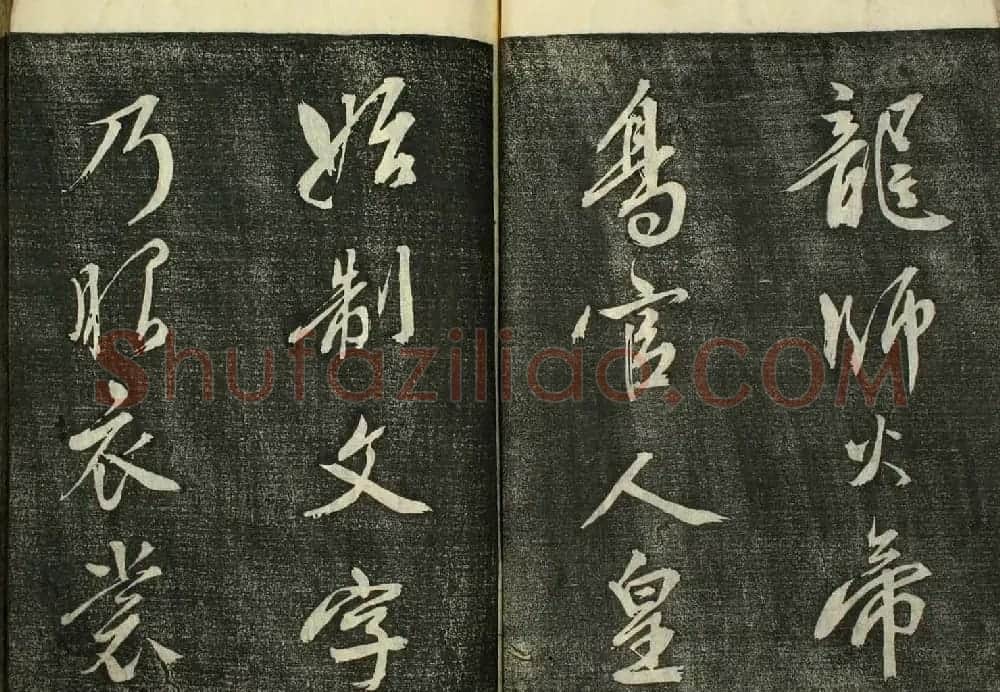 龍師火帝
鳥官人皇
始制文字
乃服衣裳
Shufaziliao.COM